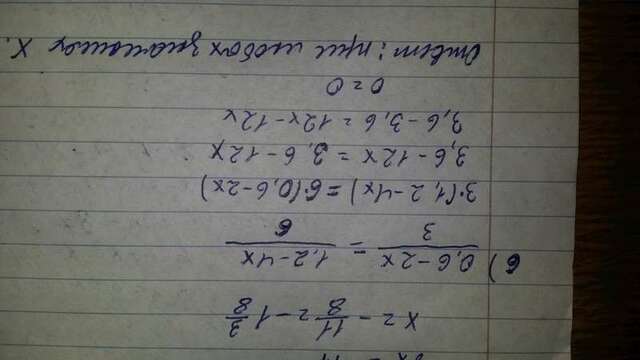 x = - 11/8 = -1 3/8
в) (0,6-2x)/3 = (1,2-4x)/6
3·(1,2-4x) = 6·(0,6-2x)
3,6-12x = 3,6-12x
3,6-3,6 = 12x-12x
0=0
Ответ: при любых значениях x.